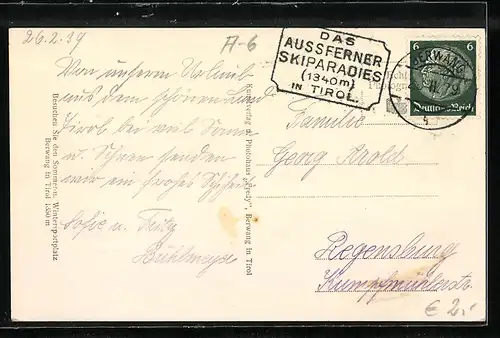 26.2.39
A-6
DAS
AUSSFERNER
SKIPARADIES
(1340m)
IN TIROL.
6 6
BERWANG
Deutsches Reich
Von unserem Urlaub
aus dem schönen Land
Tirol bei viel Sonne
u. Schnee senden
wir ein frohes Schiheil
Sofie u. Fritz
Bühlmeyer
Familie
Georg Arold
Regensburg
Kumpfmühlerstr.
€ 2,-
Besuchen Sie den Sommer- u. Wintersportplatz
Berwang in Tirol 1336 m
Kunstverlag u. Photohaus „Fredy“, Berwang in Tirol